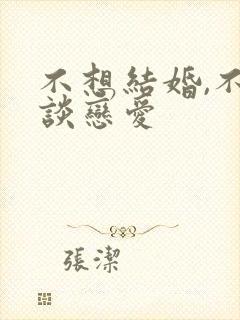 不想結婚,不
談戀愛
張潔